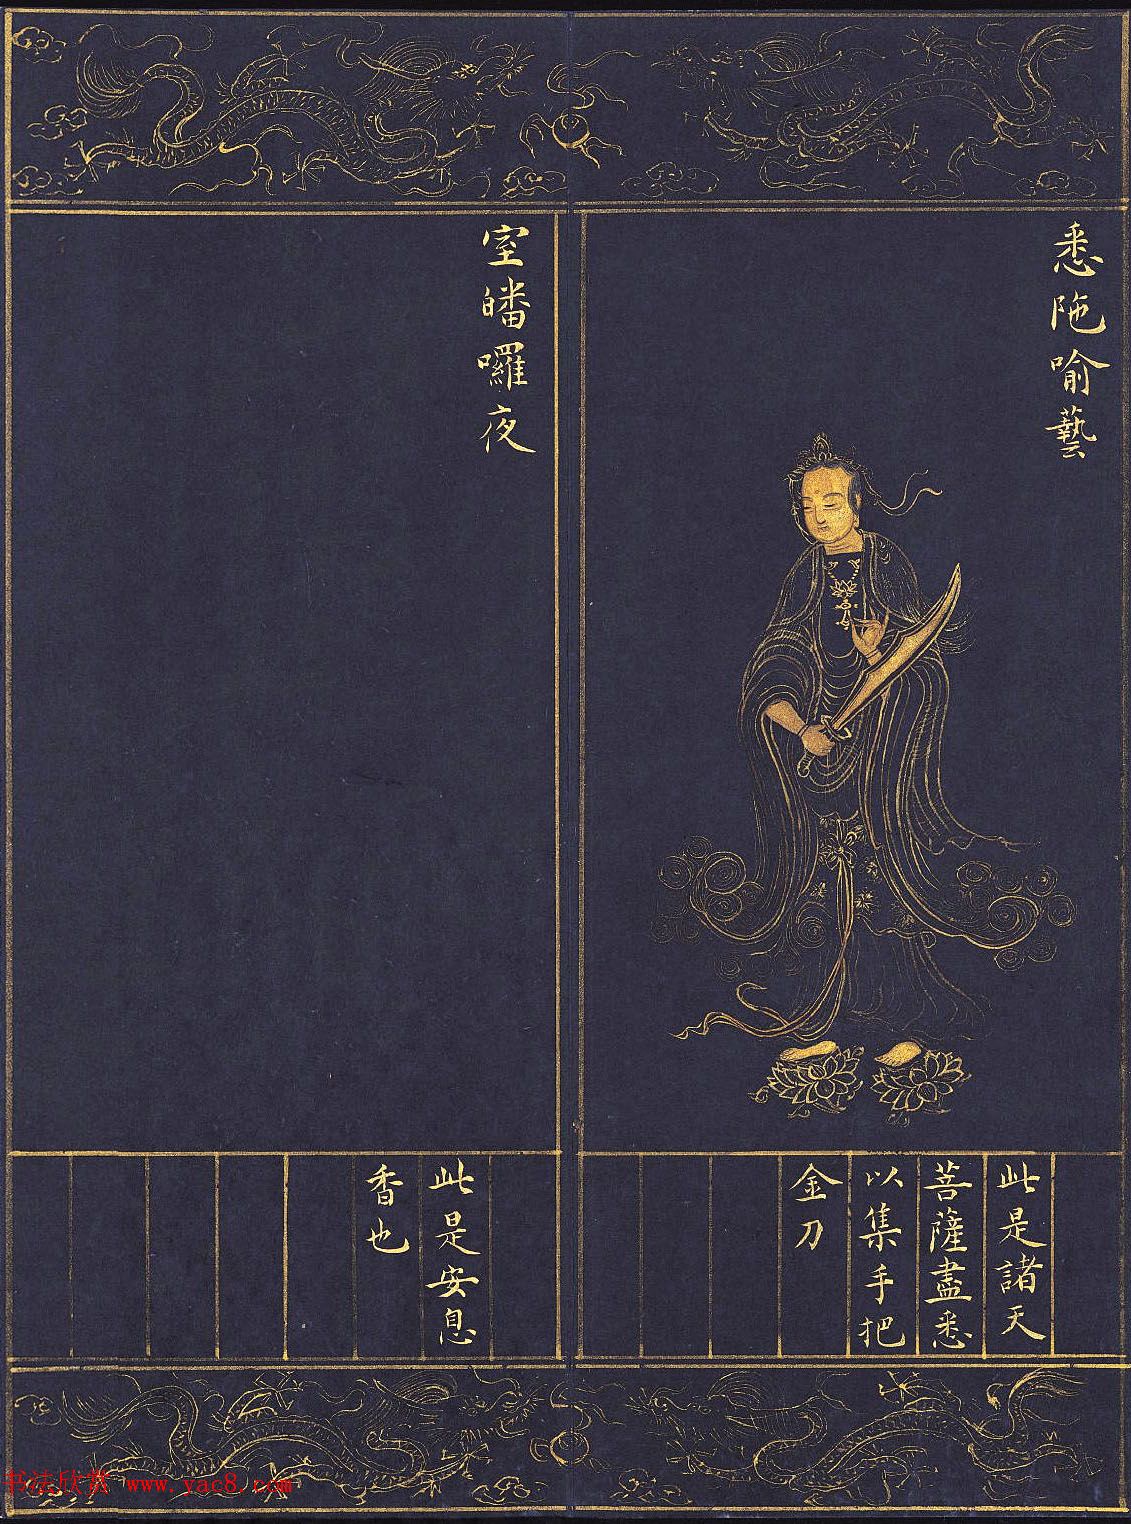 悉陁喻藝
此是諸天
菩薩盡悉
以集手把
金刀
室皤囉夜
此是安息
香也
书法欣赏 www.yac8.com